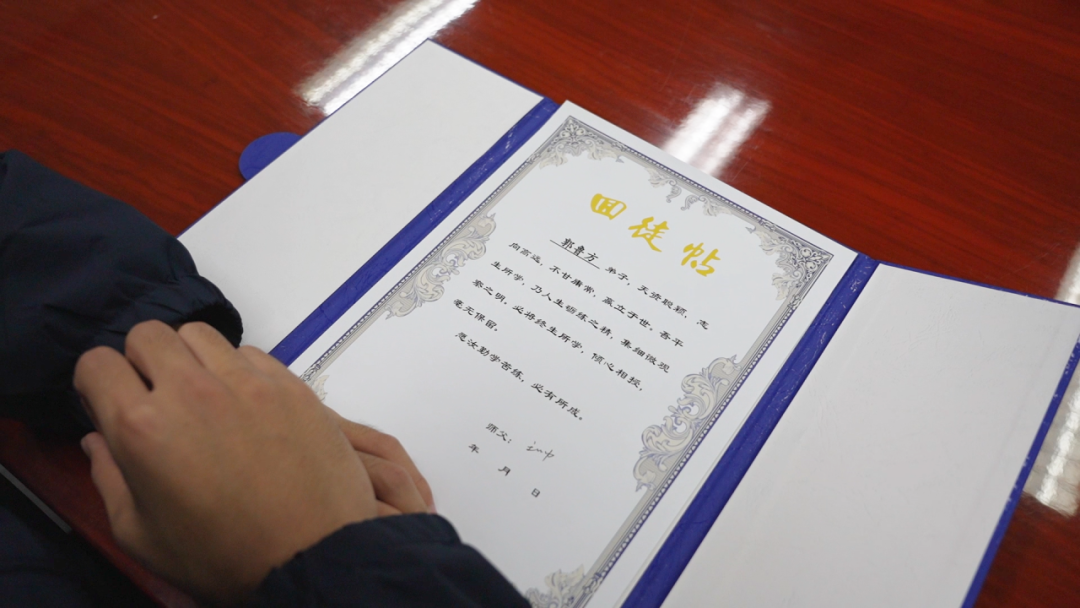 回徒帖
郭青方 弟子，天资聪颖，志
向高远，不甘庸常，嬴立于世，吾平
生所学，乃人生锻练之精，集细微观
察之明。必将终生所学，倾心相授，
毫无保留。
愿汝勤学苦练，必有所成。
师父：
年 月 日